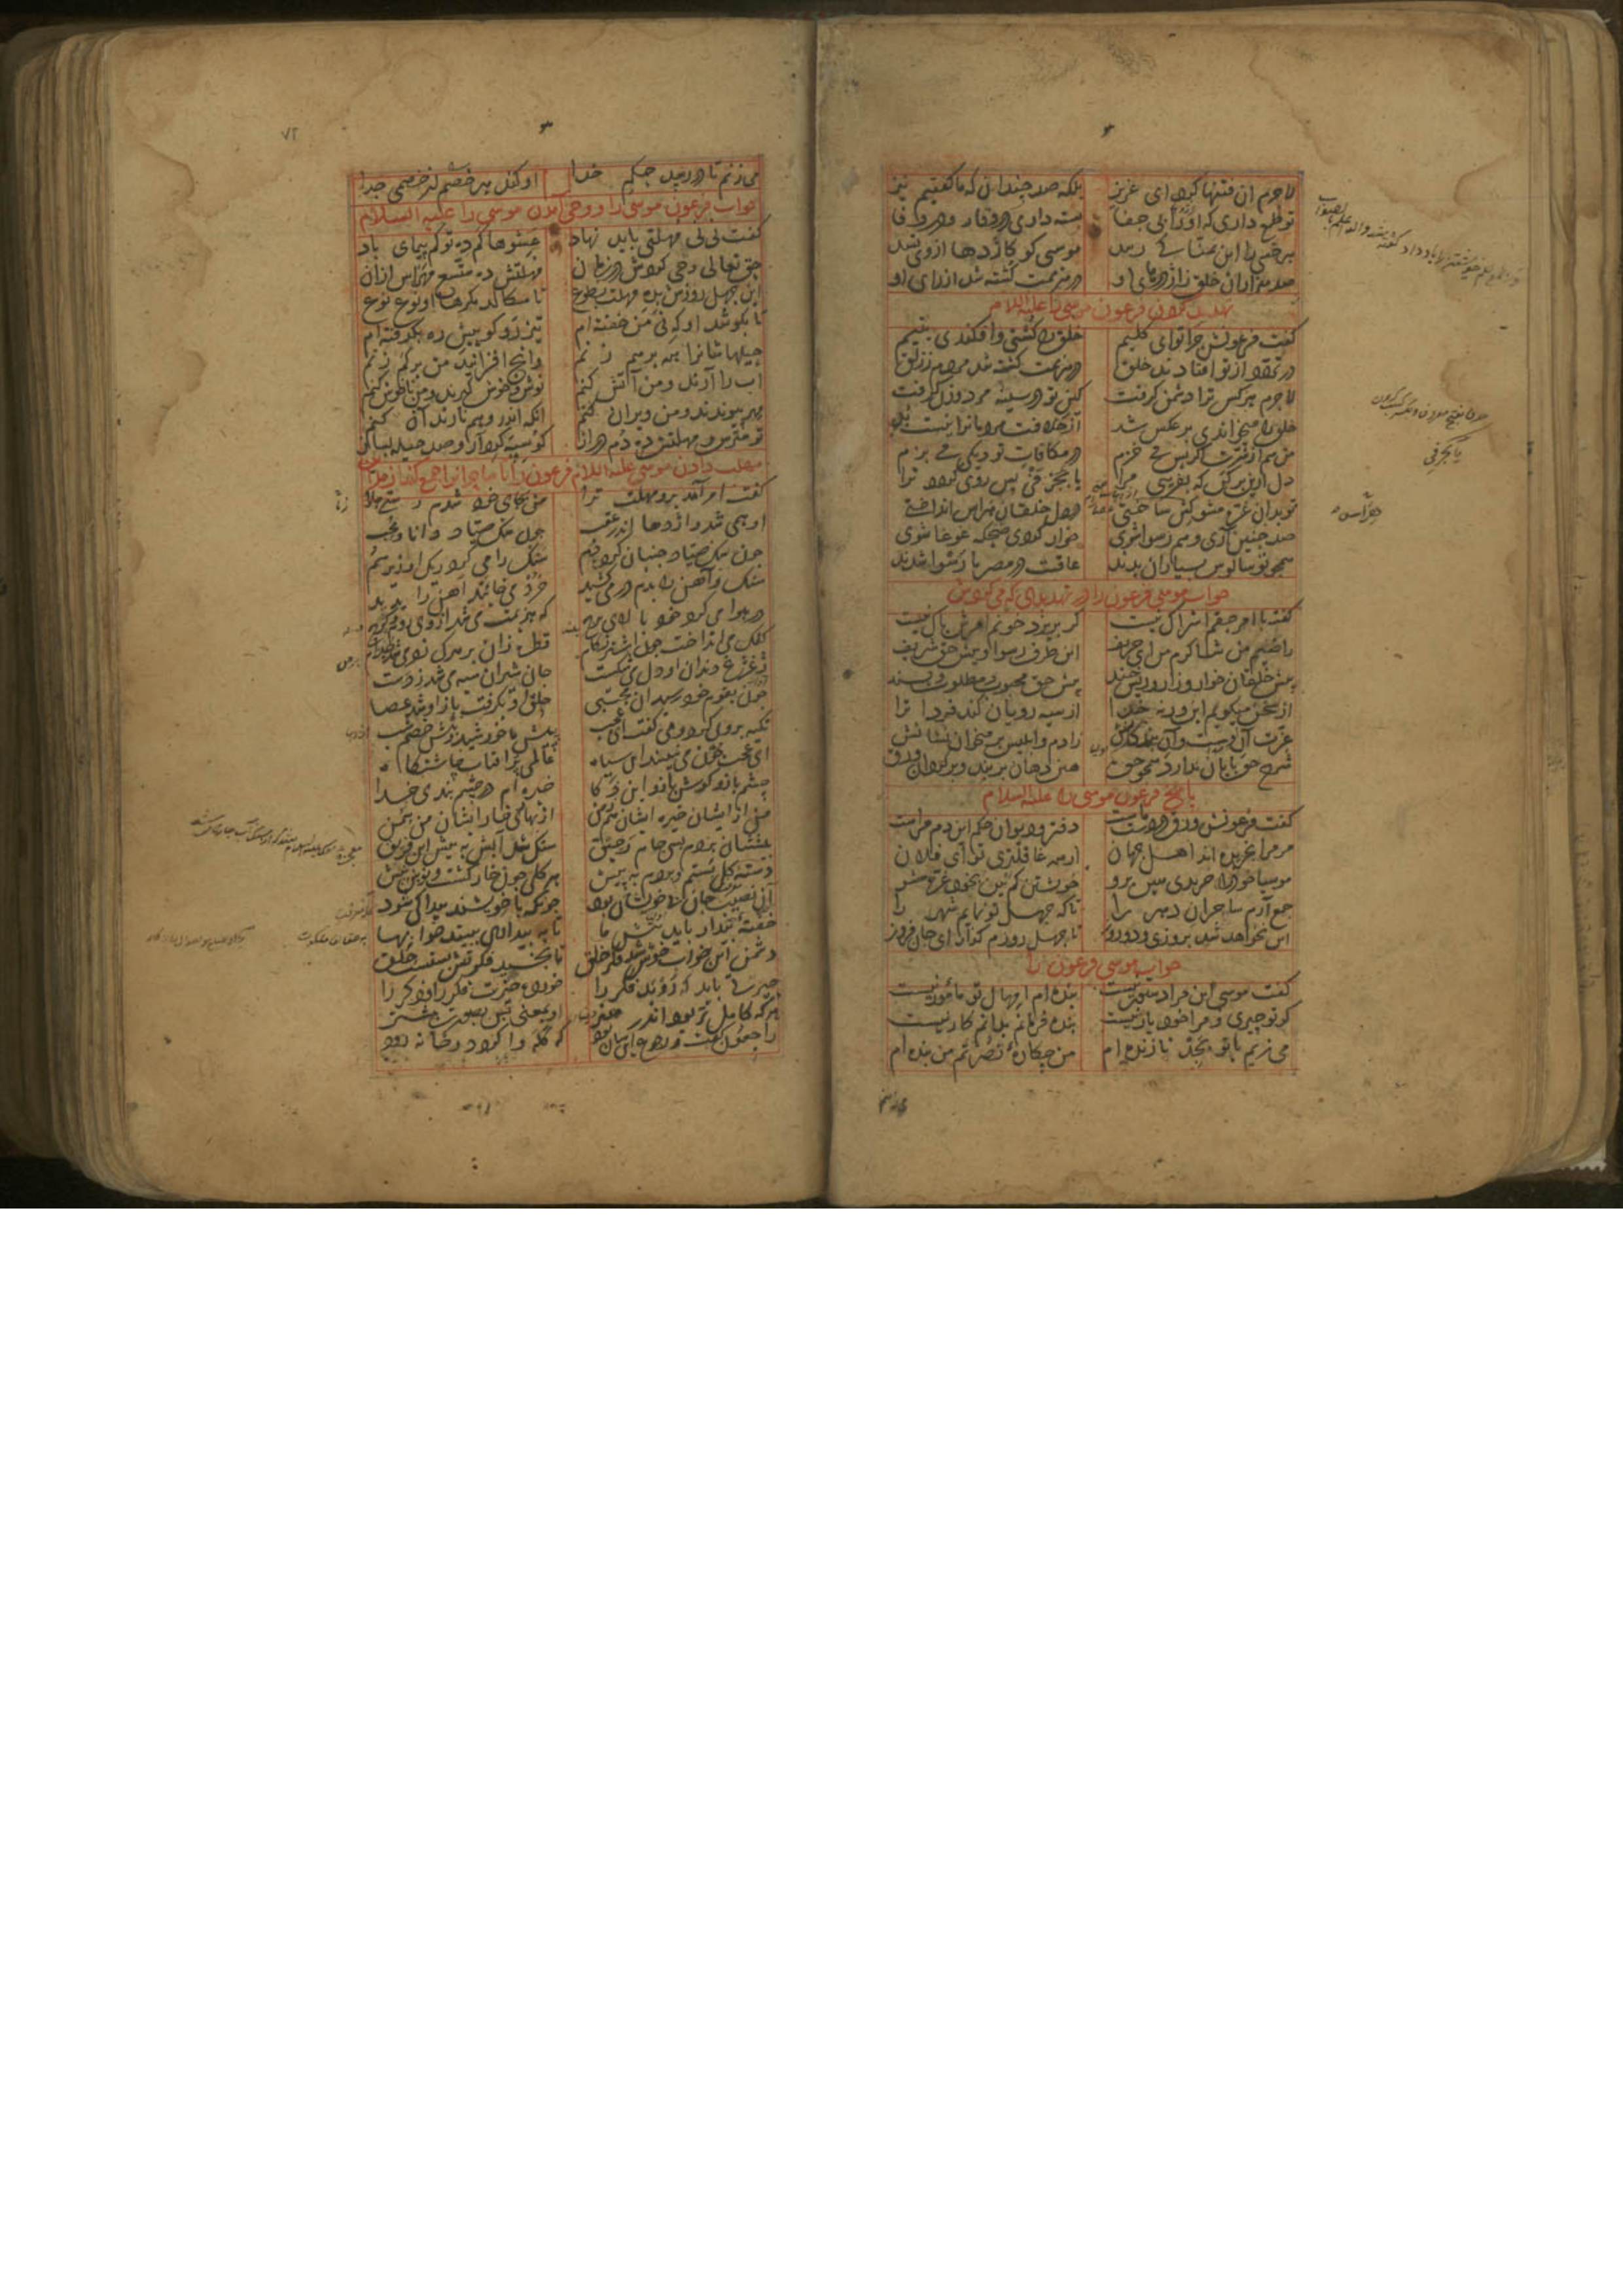 لاجرم ان فتنها کرد ای عزیز بلکه صد چندان که ما گفتیم نیز
تو طمع داری که او را بی جفا بسته داری در وقار و در وفا
هر خسی را این تمنا کی رسد موسیی کو کاژدها ازو کشد
صد هزاران خلق ز اژدرهای او در هزیمت کشته شد از رای او
تهدید کردن فرعون موسی را علیه السلام
گفت فرعونش چرا تو ای کلیم خلق را کشتی و افکندی به بیم
در هزیمت از تو افتادند خلق در هزیمت کشته شد مردم ز زلق
لاجرم هر کس ترا دشمن گرفت کین تو در سینه مرد و زن گرفت
خلق را میخواندی بر عکس شد از خلافت مردمانرا نیست بد
من هم از شرت اگر پس می خزم در مکافات تو دیگی می پزم
دل ازین برکن که بفریبی مرا یا بجز فی پس روی گردد ترا
تو بدان غره مشو کش ساختی در دل خلقان هراس انداختی
صد چنین آری و هم رسوا شوی خوار گردی ضحکه غوغا شوی
همچو تو سالوس بسیاران بدند عاقبت در مصر ما رسوا شدند
جواب موسی فرعون را در تهدیدی که می کردش
گفت با امر حقم اشراک نیست گر بریزد خونم امرش باک نیست
راضیم من شاکرم من ای حریف این طرف رسوا و پیش حق شریف
پیش خلقان خوار و زار و ریش خند پیش حق محبوب و مطلوب و پسند
از سخن میگویم این ورنه خدا از سیه رویان کند فردا ترا
عزت آن اوست و آن بندگانش ز ادم و ابلیس بر می خوان نشانش
شرح حق پایان ندارد همچو حق هین دهان بربند و برگردان ورق
پاسخ فرعون موسی را علیه السلام
گفت فرعونش ورق در حکم ماست دفتر و دیوان حکم این دم مراست
مر مرا بخریده اند اهل جهان از همه عاقلتری تو ای فلان
موسیا خود را خریدی هین برو خویشتن کم بین بخود غره مشو
جمع آرم ساحران دهر را تا که جهل تو نمایم شهر را
این نخواهد شد بروزی و دو روز تا چهل روزم ده ای جان فروز
جواب موسی فرعون را
گفت موسی این مرا دستور نیست بنده ام امهال تو مامور نیست
گر تو چیری و مرا خود یار نیست بنده فرمانم بدانم کار نیست
می زنم با تو بجد تا زنده ام من چه کاره نصرتم من بنده ام
می زنم تا در رسد حکم خدا او کند هر خصم از خصمی جدا
جواب فرعون موسی را و وحی امدن موسی را علیه السلام
گفت نی نی مهلتی باید نهاد عشوها کم ده تو کم پیمای باد
حق تعالی وحی کردش در زمان مهلتش ده متسع مهراس ازان
این چهل روزش بده مهلت بطوع تا سکالد مکرها او نوع نوع
تا بکوشد او که نی من خفته ام تیز رو گو پیش ره بگرفته ام
حیلهاشانرا همه برهم زنم وانچ افزایند من بر کم زنم
اب را ارند و من آتش کنم نوش و خوش گیرند و من ناخوش کنم
مهر پیوندند و من ویران کنم انکه اندر وهم نارند آن کنم
تو مترس و مهلتش ده دم دراز گو سپه گرد آر و صد حیلت بساز
مهلت دادن موسی علیه السلام فرعون را تا ساحرانرا جمع کند از مداین
گفت امر آمد برو مهلت ترا من بجای خود شدم رستی ز ما
او همی شد و اژدها اندر عقب چون سگ صیاد و دانا و محب
چون سگ صیاد جنبان کرده دم سنگ را می کرد ریگ او زیر سم
سنگ و آهن را بدم در می کشید خرد می خایید آهن را پدید
در هوا می کرد خود بالای برج که هزیمت می شد از وی روم و گرج
کفک می انداخت چون اشتر ز کام قطره زان بر هرکه زد می شد جذام
ژغژغ دندان او دل می شکست جان شیران سیه می شد ز دست
چون بقوم خود رسید ان مجتبی حلق او بگرفت باز او شد عصا
تکیه بر وی کرد و می گفت ای عجب پیش ما خورشید و پیش خصم شب
ای عجب چون می نبیند این سپاه عالمی پر افتاب چاشتگاه
چشم باز و گوش باز و این ذکا خیره ام در چشم بندی خدا
من از ایشان خیره ایشان هم ز من از بهاری خار ایشان من سمن
پیششان بردم بسی جام رحیق سنگ شد آبش به پیش این فریق
دسته گل بستم و بردم به پیش هر گلی چون خار گشت و نوش نیش
آن نصیب جان بی خویشان بود چونکه با خویشند پیدا کی شود
خفته بیدار باید پیش ما تا به بیداری ببیند خوابها
دشمن این خواب خوش شد فکر خلق تا نخسبد فکرتش بستست حلق
حیرتی باید که روبد فکر را خورده حیرت فکر را و ذکر را
هرکه کامل تر بود اندر هنر او بمعنی پس بصورت پیشتر
راجعون گفت و رجوع این سان بود که گله وا گردد و خانه رود